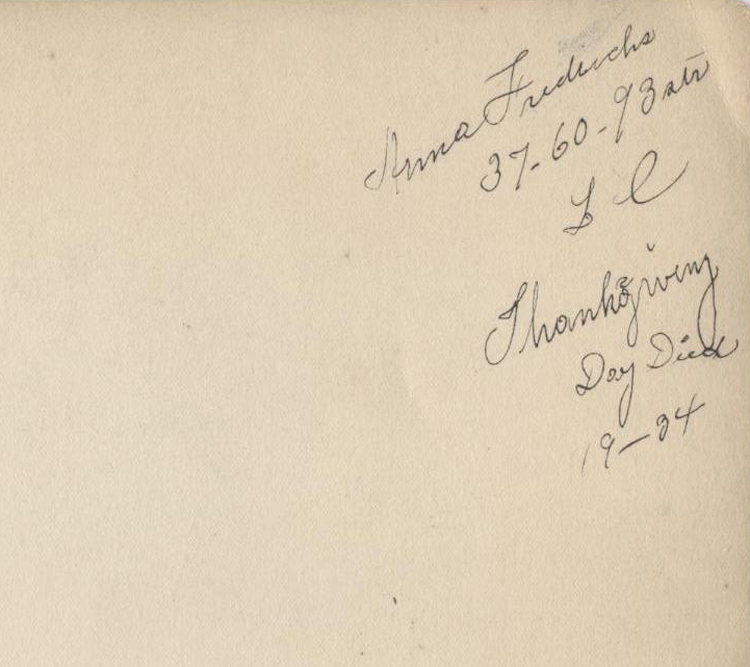 Anna Fredrichs
37-60-93 str
L I
Thanksgiving
Day Died
19-34